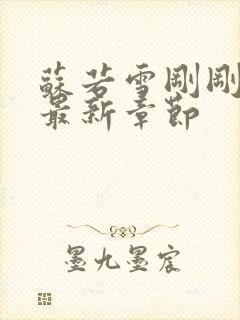 蘇若雪剛剛
最新章節
墨九墨宸